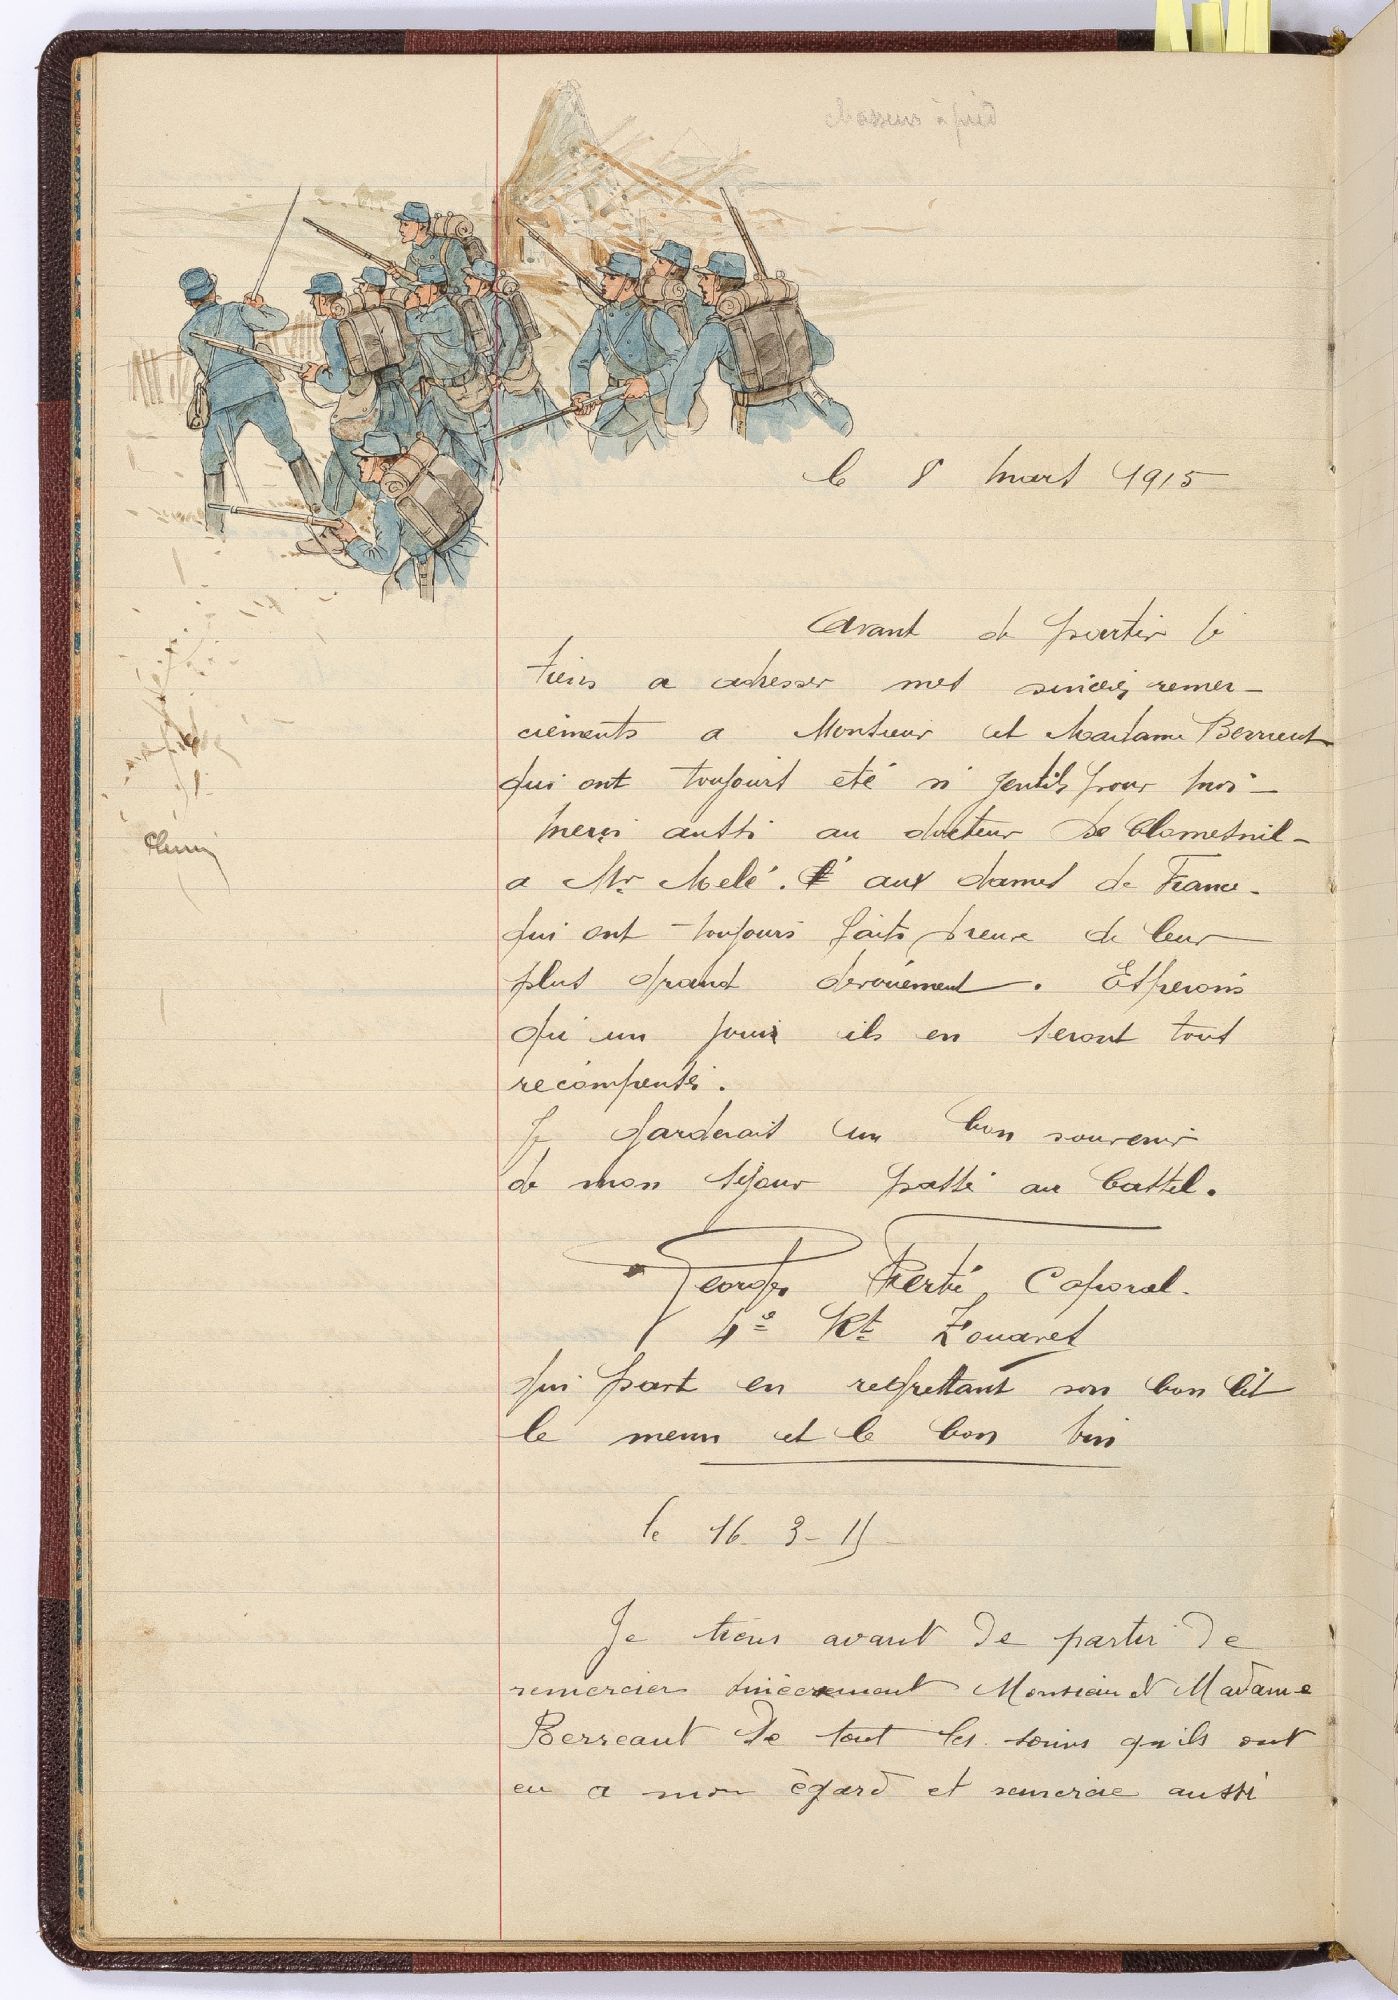 chasseur à pied
le 8 mars 1915
Avant de partir je
tiens a adresser mes sincères remer-
ciements a Monsieur et Madame Berreut
qui ont toujours eté si gentils pour moi -
merçi aussi au docteur De Clomesnil -
a Mr Melé. & aux dames de France -
qui ont toujours faits preuve de leur
plus grand devouement. Esperons
qu'un jours ils en seront tous
recompensés.
Je garderait un bon souvenir
de mon séjour passé au Castel.
Georges Fierté Caporal.
4e Rt Zouaves
qui part en regrettant son bon lit
le menu et le bon vin
le 16-3-15-
Je tiens avant de partir de
remercier sincèrement Monsieur et Madame
Berreaut de tout les soins qu'ils ont
eu a mon ègard et remercie aussi